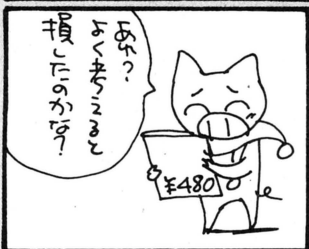 あれ？
よく考えると
損したのかな？
¥480